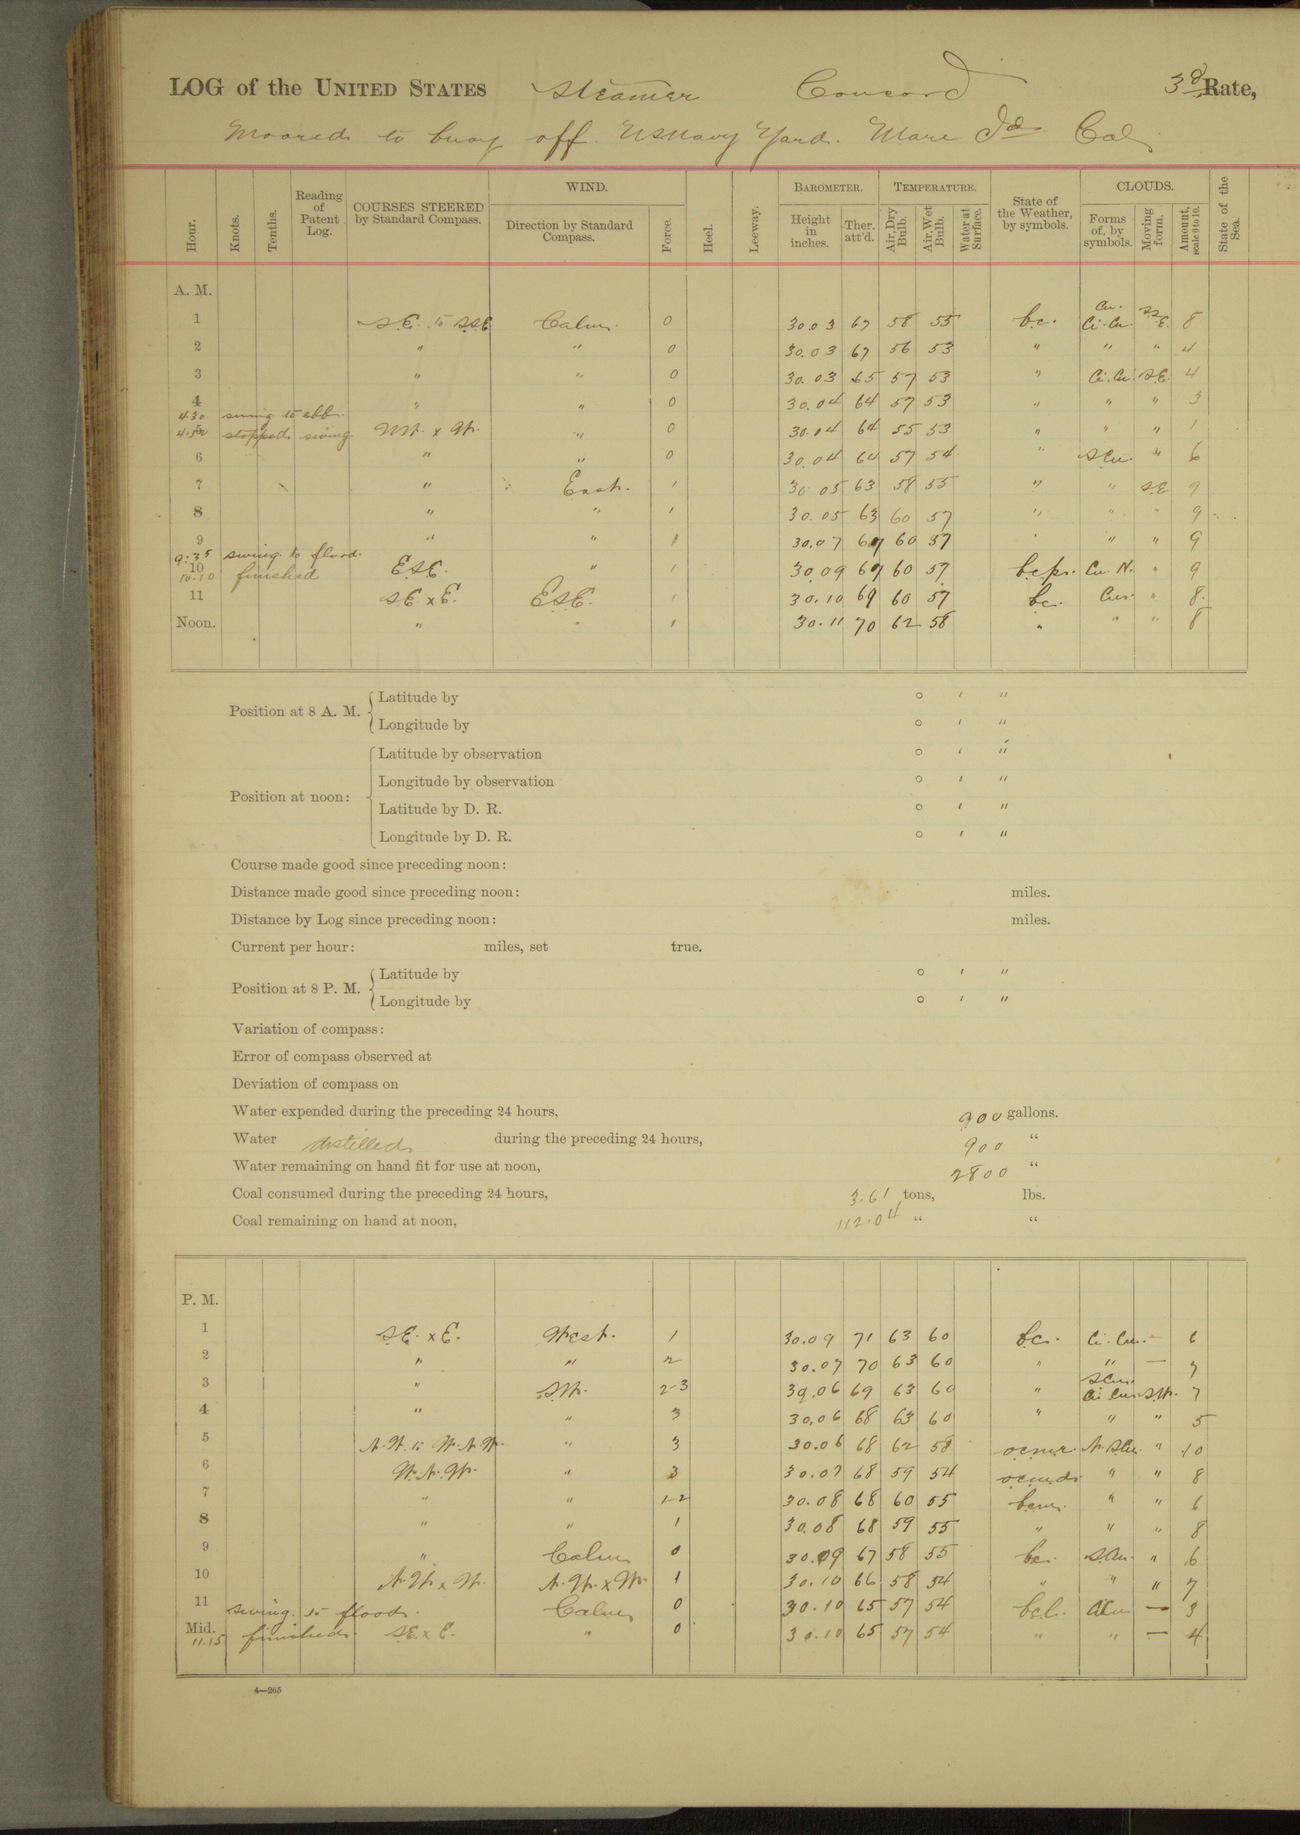 LOG of the UNITED STATES Steamer Concord 3d Rate,
Moored to buoy off U S Navy Yard. Mare Id Cal
Hour. Knots. Tenths. Reading of Patent Log. COURSES STEERED by Standard Compass. WIND. Direction by Standard Compass. Force. Heel. Leeway. BAROMETER. Height in inches. Ther. att'd. TEMPERATURE. Air, Dry Bulb. Air, Wet Bulb. Water at Surface. State of the Weather, by symbols. CLOUDS. Forms of, by symbols. Moving form. Amount, scale 0 to 10. State of the Sea.
A. M.
1 S.E. to SSE Calm 0 30.03 67 58 55 bc. Cu. Ci-Cu. SSE. 8
2 " " 0 30.03 67 56 53 " " " 4
3 " " 0 30.03 65 57 53 " Ci.Cu. S.E. 4
4 " " 0 30.04 64 57 53 " " " 3
4.30 swing to ebb.
5 stopped swing NW. x W. " 0 30.04 64 55 53 " " " 1
6 " " 0 30.04 64 57 54 " SCu. " 6
7 " East. 1 30 05 63 58 55 " " S.E 9
8 " " 1 30.05 63 60 57 " " " 9
9 " " 1 30.07 60 57 " " 9
9:35 swing to flood.
10 ESE. " 1 30.09 60 57 bcpr. Cu. N. " 9
10.10 finished
11 SE x E. ESE. 1 30.10 69 60 57 bc. Cu. " 8.
Noon. " " 1 30.11 70 62 58 " " " 8
Position at 8 A. M. Latitude by ° ′ ″
Longitude by ° ′ ″
Position at noon: Latitude by observation ° ′ ″
Longitude by observation ° ′ ″
Latitude by D. R. ° ′ ″
Longitude by D. R. ° ′ ″
Course made good since preceding noon:
Distance made good since preceding noon: miles.
Distance by Log since preceding noon: miles.
Current per hour: miles, set true.
Position at 8 P. M. Latitude by ° ′ ″
Longitude by ° ′ ″
Variation of compass:
Error of compass observed at
Deviation of compass on
Water expended during the preceding 24 hours, 900 gallons.
Water distilled during the preceding 24 hours, 900 "
Water remaining on hand fit for use at noon, 2800 "
Coal consumed during the preceding 24 hours, 3.61 tons, lbs.
Coal remaining on hand at noon, 112.04 " "
P. M.
1 SE. x E. West. 1 30.09 71 63 60 bc. Ci.Cu. — 6
2 " " 2 30.07 70 63 60 " " — 7
3 " SW. 2-3 30.06 69 63 60 " SCu. Ci Cu. SW. 7
4 " " 3 30.06 68 63 60 " " " 5
5 N.W. to W.N.W. " 3 30.06 68 62 58 N.SCu. " 10
6 W.N.W. " 3 30.07 68 59 54 " " 8
7 " " 1-2 30.08 68 60 55 bcm. " " 6
8 " " 1 30.08 68 59 55 " " " 8
9 " Calm 0 30.09 67 58 55 bc. SCu. " 6
10 N.W. x W. N.W. x W. 1 30.10 66 58 54 " " " 7
11 swing to flood. Calm 0 30.10 65 57 54 — 3
Mid. 11.15 finished. SE. x E. " 0 30.10 65 57 54 " " — 4
4—265